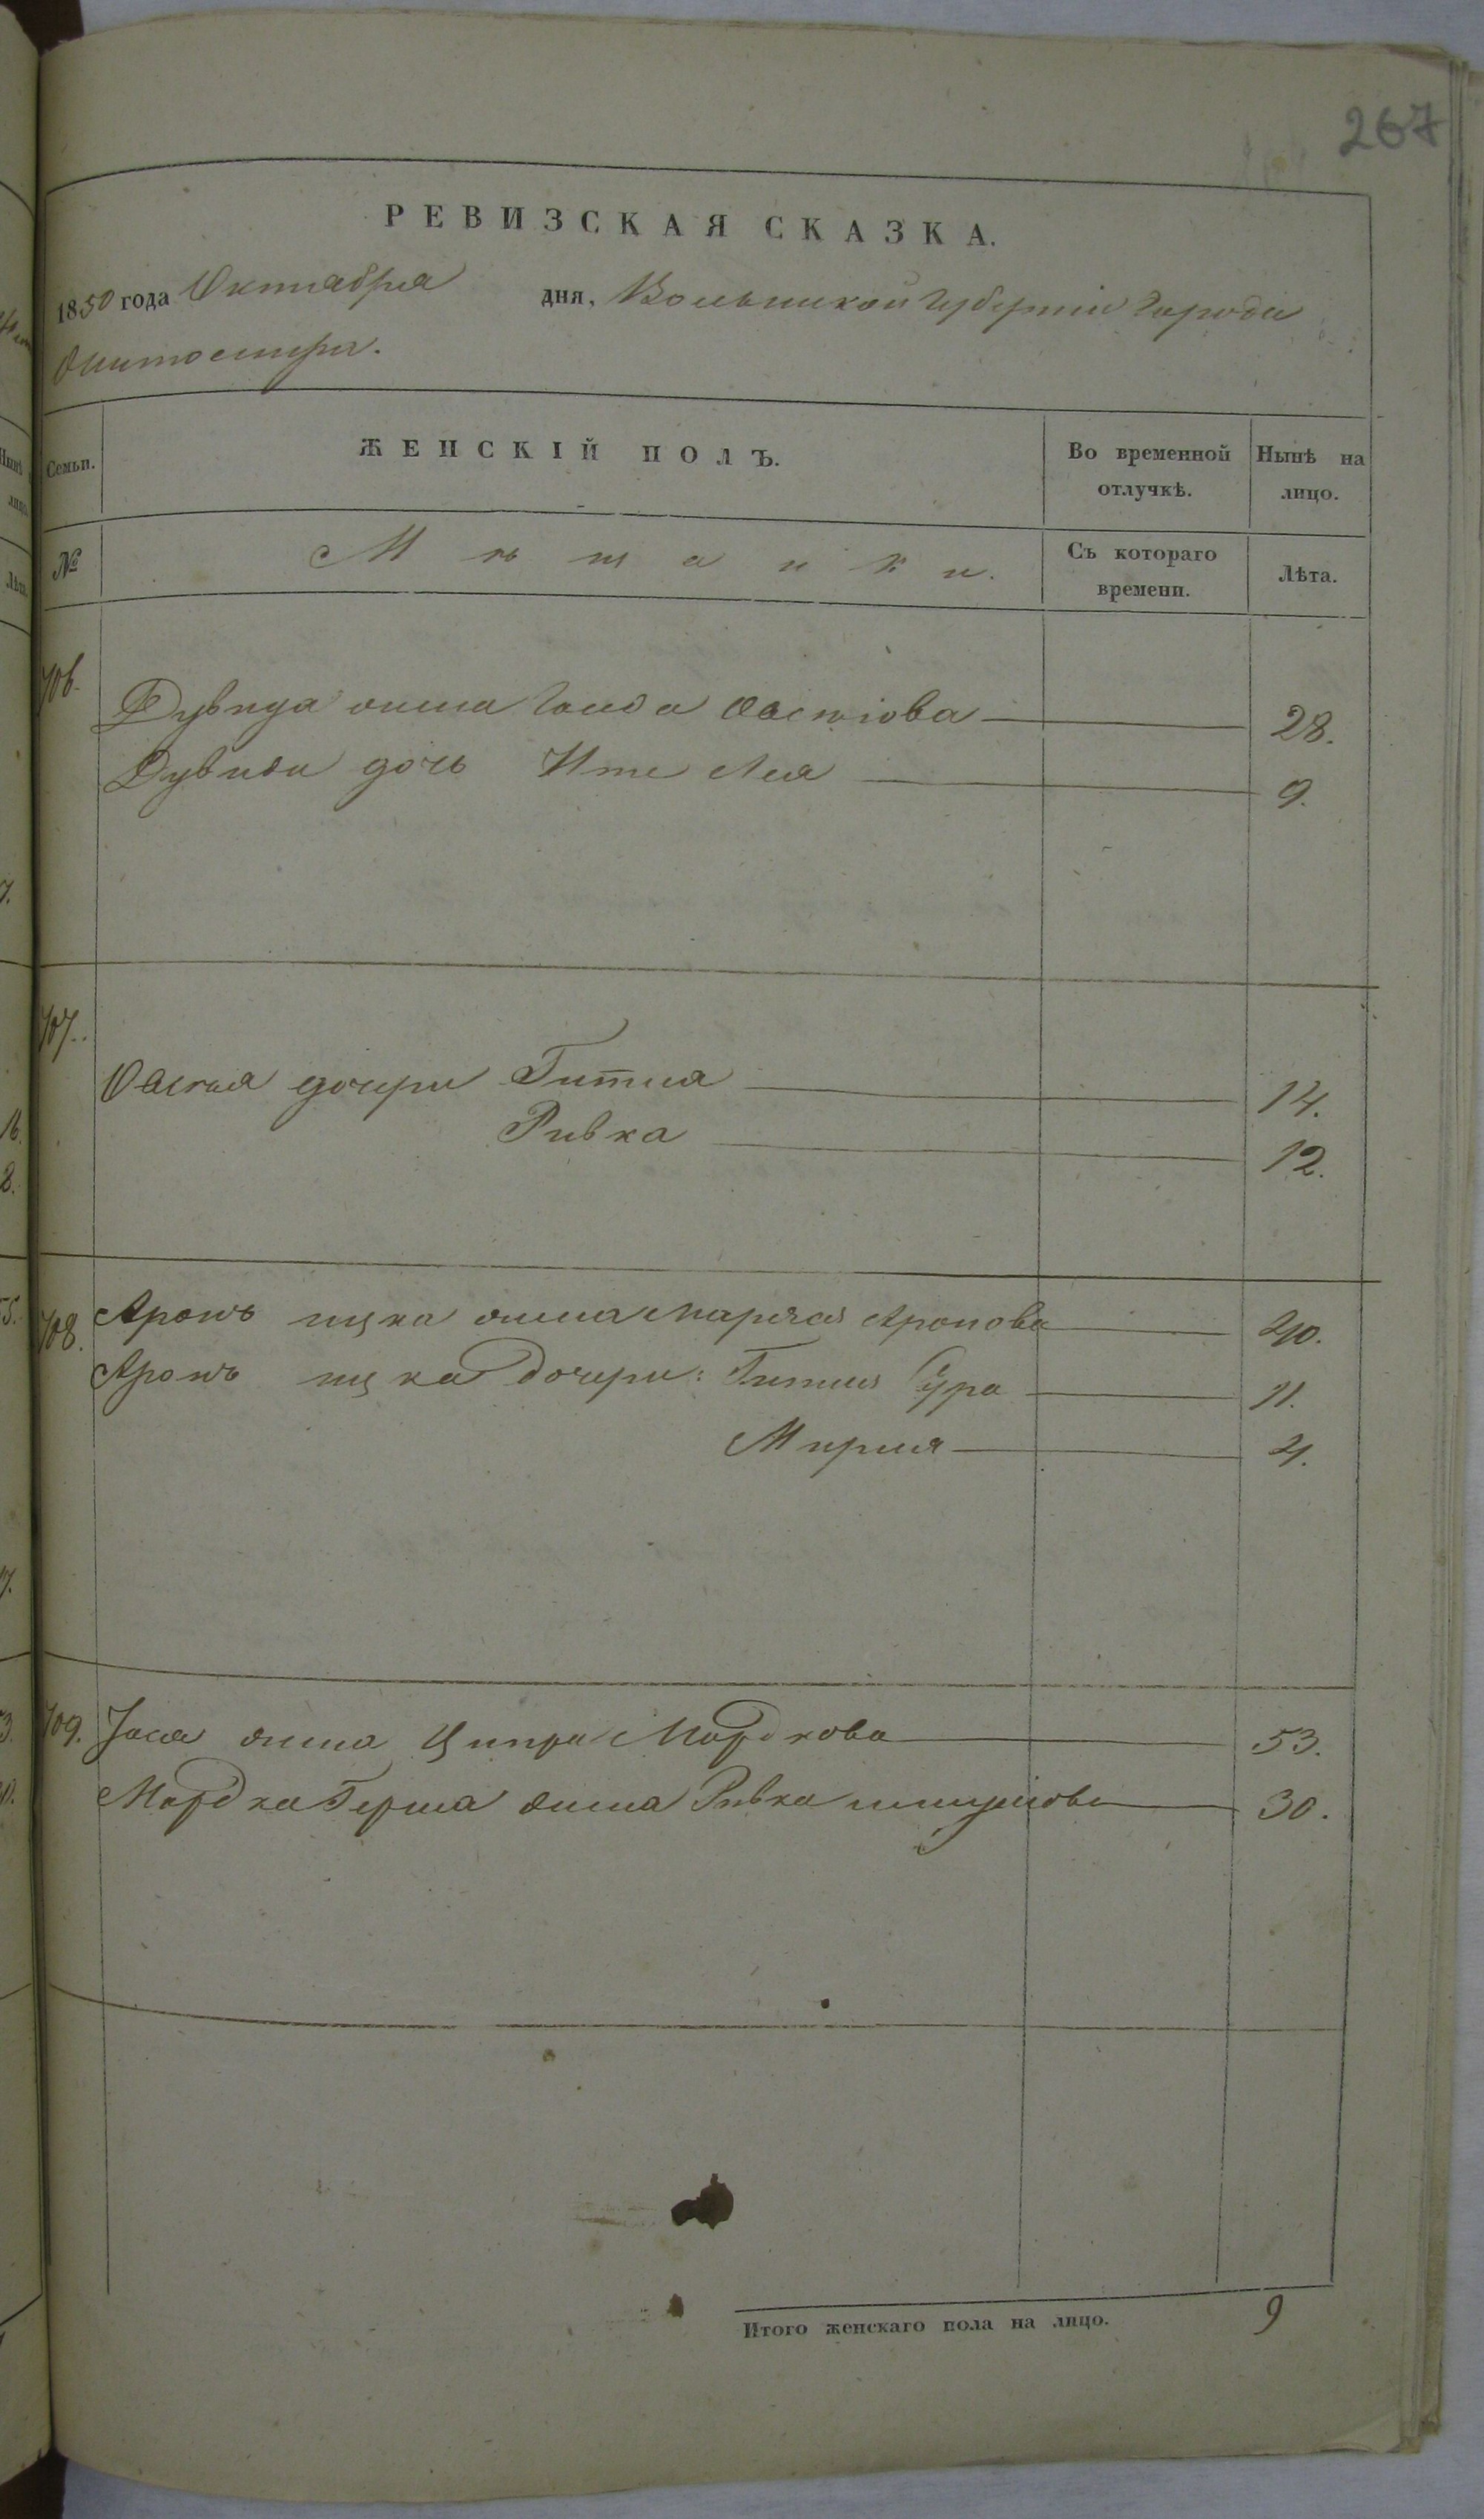 267
РЕВИЗСКАЯ СКАЗКА.
1850 года Октября дня, Волынской Губерніи Города
Житомира.
Семьи. ЖЕНСКІЙ ПОЛЪ. Во временной отлучкѣ. Нынѣ на лицо.
№ Мѣщанки. Съ котораго времени. Лѣта.
706. Дувида жена 28.
Дувида дочь Ита Лея 9.
707. дочери Гитля 14.
Ривка 12.
708. Аронъ ицка жена Аронова 40.
Аронъ ицка дочери: Гитля Сура 11.
Мирля 4.
709. жена Ципра Мордкова 53.
Мордка Герша жена Ривка 30.
Итого женскаго пола на лицо. 9